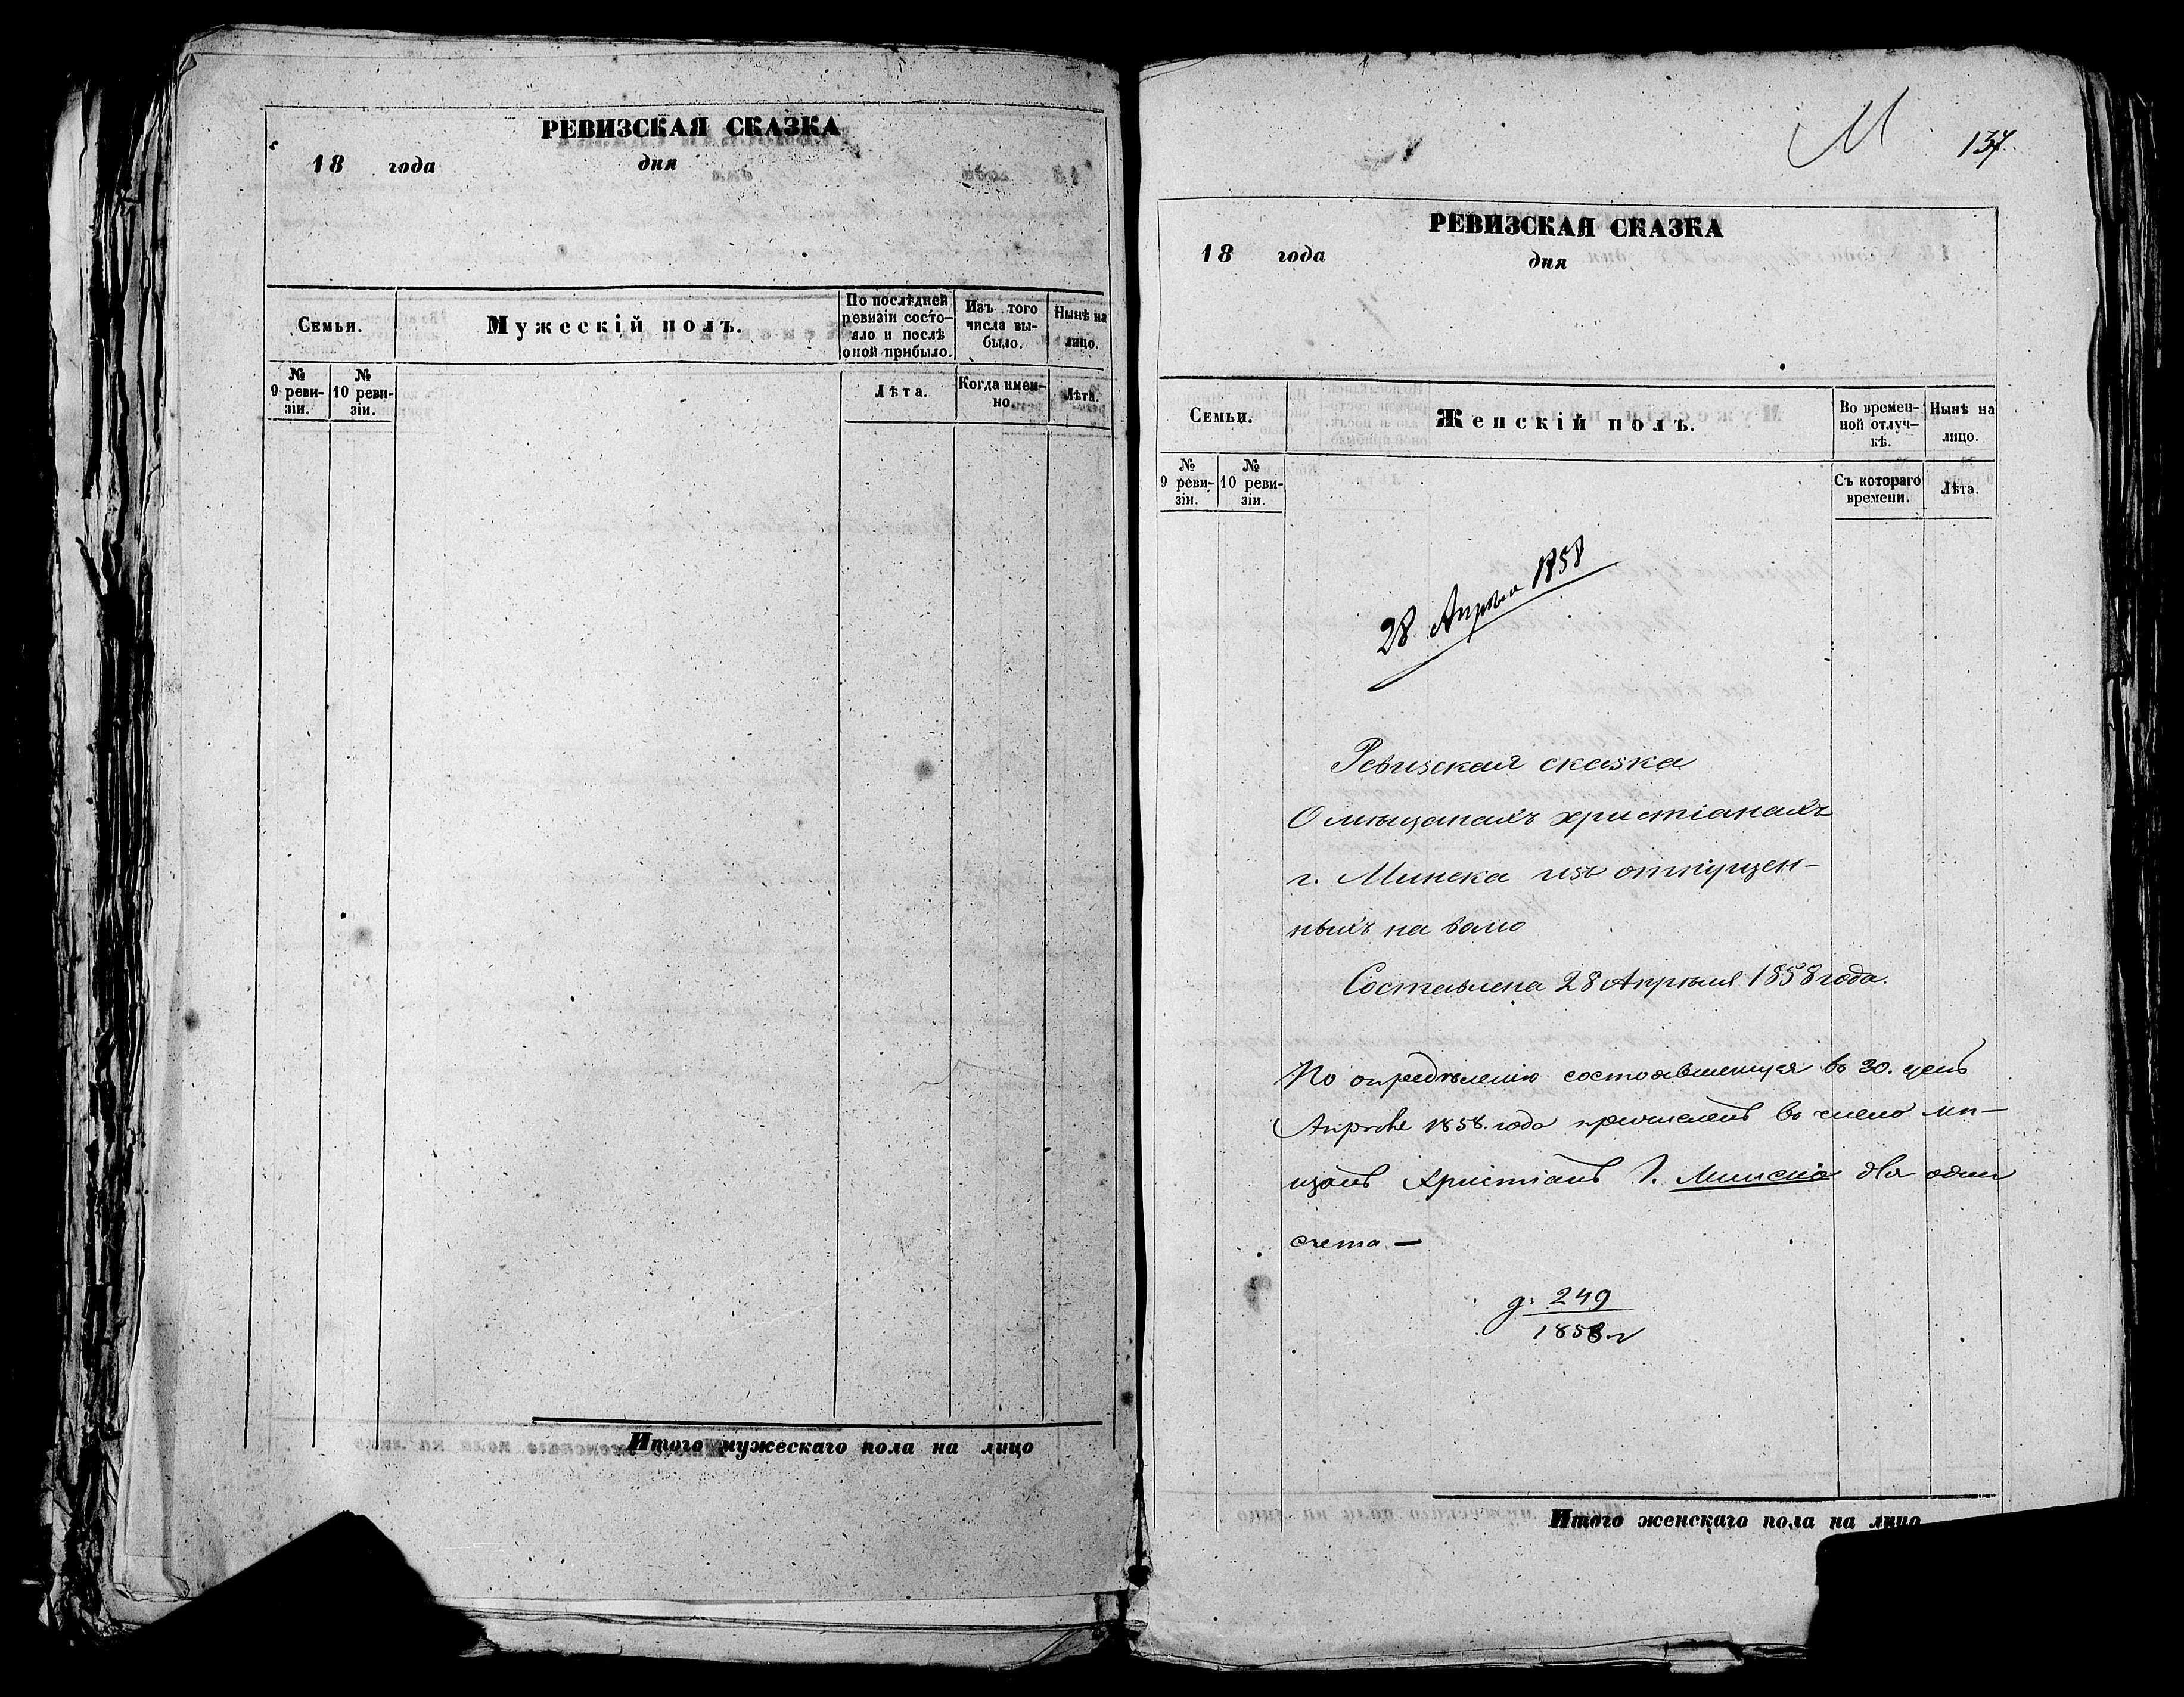 РЕВИЗСКАЯ СКАЗКА
18 года дня
Семьи.
Мужескій полъ.
По послѣдней ревизіи состо-
яло и послѣ оной прибыло.
Изъ того числа вы-
было.
Нынѣ на лицо.
№ 9 реви-
зіи.
№ 10 реви-
зіи.
Лѣта.
Когда имен-
но.
Лѣта.
Итого мужескаго пола на лицо
М
137.
РЕВИЗСКАЯ СКАЗКА
18 года дня
Семьи.
Женскій полъ.
Во времен-
ной отлуч-
кѣ.
Нынѣ на
лицо.
№ 9 реви-
зіи.
№ 10 реви-
зіи.
Съ котораго
времени.
Лѣта.
28 Апрѣля 1858
Ревизская сказка
О мѣщанахъ христіанахъ
г. Минска изъ отпущен-
ныхъ на волю
Составлена 28 Апрѣля 1858 года.
По опредѣленію состоявшемуся въ 30. день
Апрѣля 1858. года причисленъ въ число мѣ-
щанъ Христіанъ г. Минска для
счета —
д: 249
1858 г
Итого женскаго пола на лицо